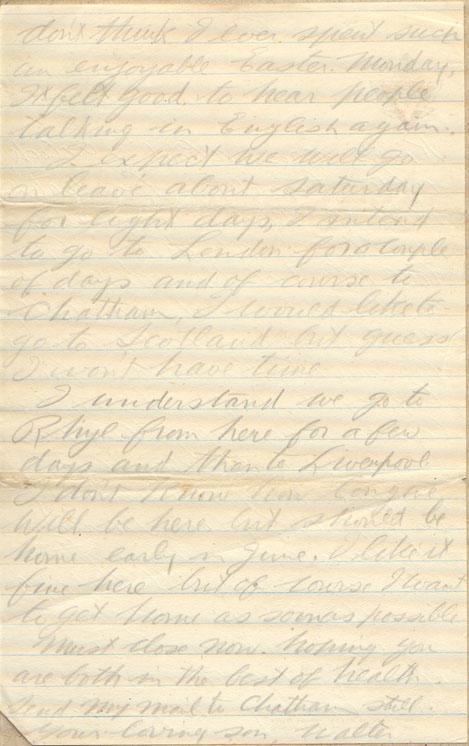 don't think I ever spent such
an enjoyable Easter Monday,
It felt good to hear people
talking in English again.
I expect we will go
on leave about Saturday
for eight days, I intend
to go to London for a couple
of days and of course to
Chatham, I would like to
go to Scotland but guess
I won't have time
I understand we go to
Rhyl from here for a few
days and then to Liverpool
I don't know how long we
will be here but should be
home early in June. I like it
fine here but of course I want
to get home as soon as possible
Must close now. hoping you
are both in the best of health.
Send my mail to Chatham still.
Your loving son, Walter.